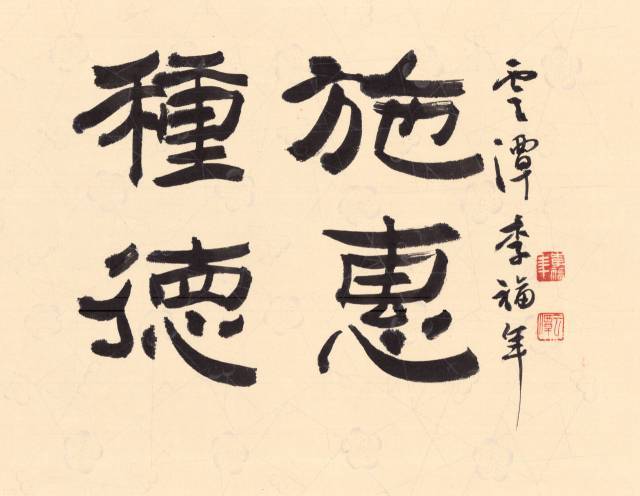 種德
施惠
雲潭李福年